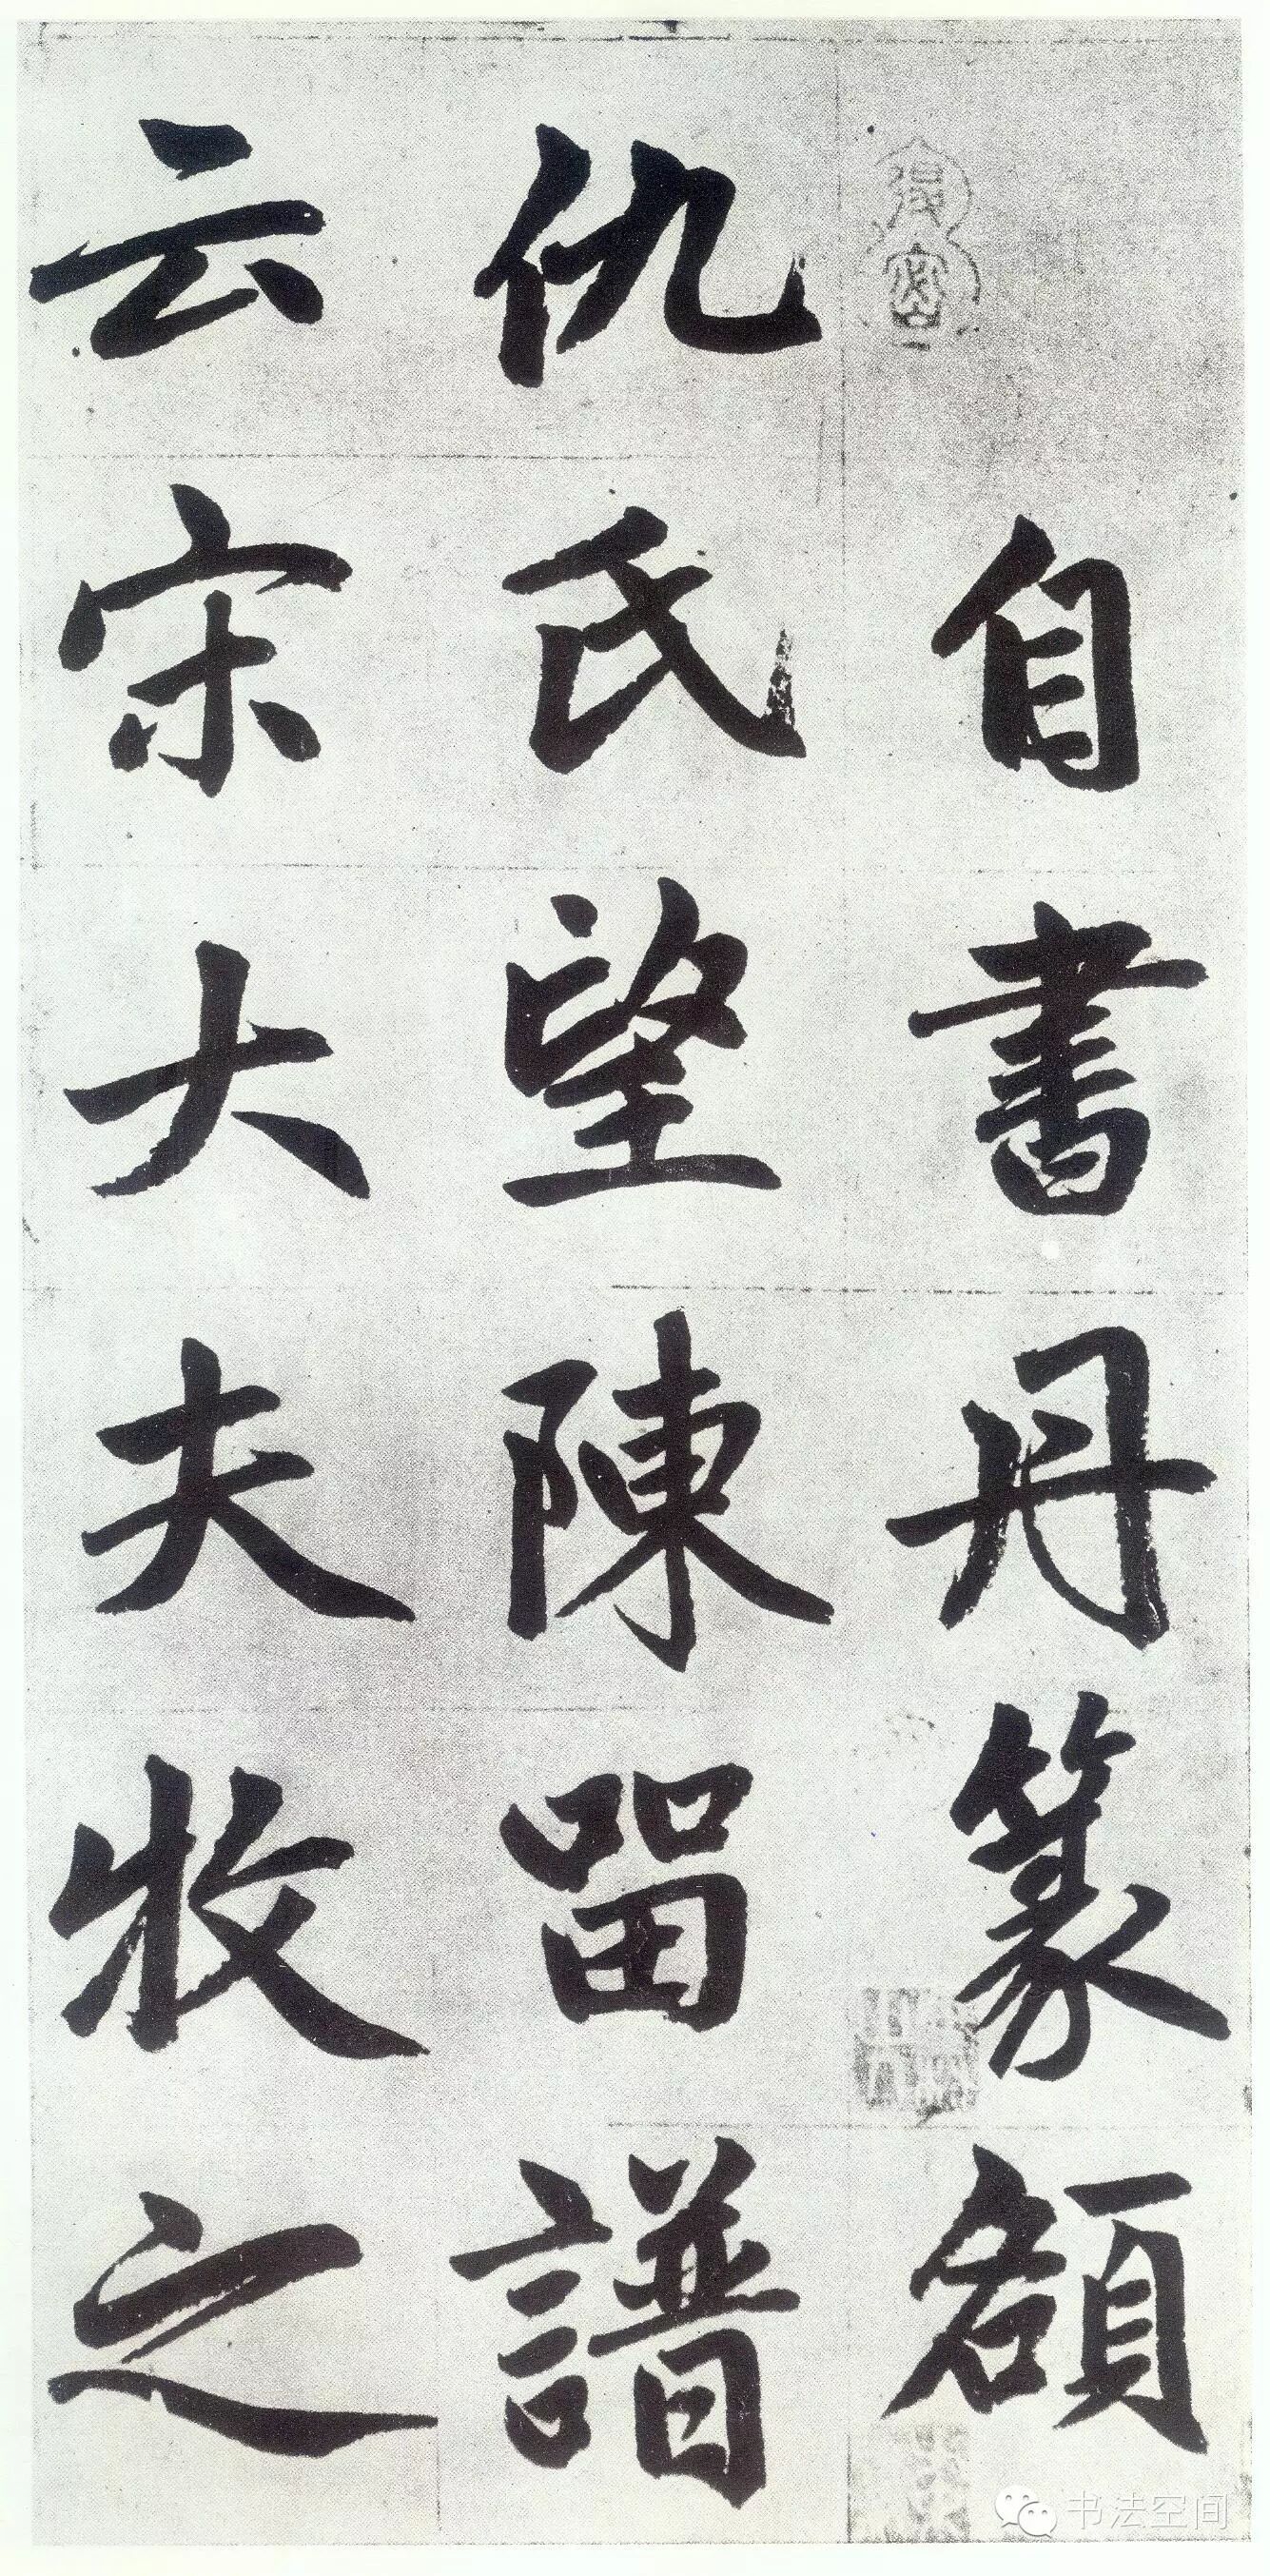 自書丹篆額
仇氏望陳留譜
云宋大夫牧之
书法空间